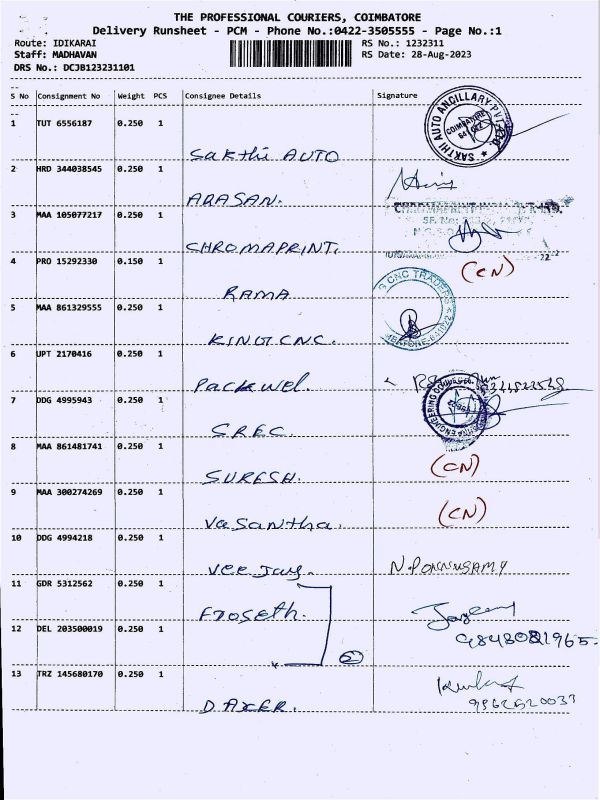 THE PROFESSIONAL COURIERS, COIMBATORE
Delivery Runsheet - PCM - Phone No.:0422-3505555 - Page No.:1
Route: IDIKARAI RS No.: 1232311
Staff: MADHAVAN RS Date: 28-Aug-2023
DRS No.: DCJB123231101
S No Consignment No Weight PCS Consignee Details Signature
1 TUT 6556187 0.250 1
SAKTHI AUTO ANCILLARY PVT
COIMBATORE
Sakthi AUTO
2 HRD 344038545 0.250 1
ARASAN.
3 MAA 105077217 0.250 1
CHROMAPRINT.
4 PRO 15292330 0.150 1 (CN)
RAMA
5 MAA 861329555 0.250 1
CNC TRADERS
KING CNC.
6 UPT 2170416 0.250 1
Packwel.
7 DDG 4995943 0.250 1
SREC.
8 MAA 861481741 0.250 1 (CN)
SURESH.
9 MAA 300274269 0.250 1 (CN)
Vasantha.
10 DDG 4994218 0.250 1 N.PONNUSAMY
Vee Jay.
11 GDR 5312562 0.250 1
Froseth.
12 DEL 203500019 0.250 1
2
13 TRZ 145680170 0.250 1